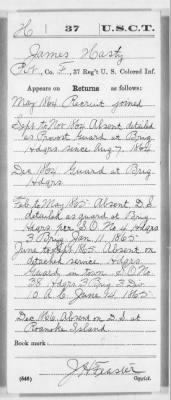 H 37 U.S.C.T.
James Hasty
Pvt, Co. F, 37 Reg't U. S. Colored Inf.
Appears on Returns as follows:
May 1864 Recruit joined
Sept to Nov 1864 Absent detailed
as Provost Guard at Brig.
Hdqrs since Aug 7, 1864
Dec 1864 Guard at Brig.
Hdqrs
Feb to May 1865 Absent D.S.
detailed as guard at Brig.
Hdqrs per S.O. No 4 Hdqrs
3 Brig Jan. 11, 1865
June to Sept 1865 Absent on
detached service Hdqrs
Guard in town S.O. No
38 Hdqrs 3 Brig 3 Div
10 A.C. June 14, 1865
Dec 1866 Absent on D.S. at
Roanoke Island
Book mark:
J H Feaster
(546) Copyist.